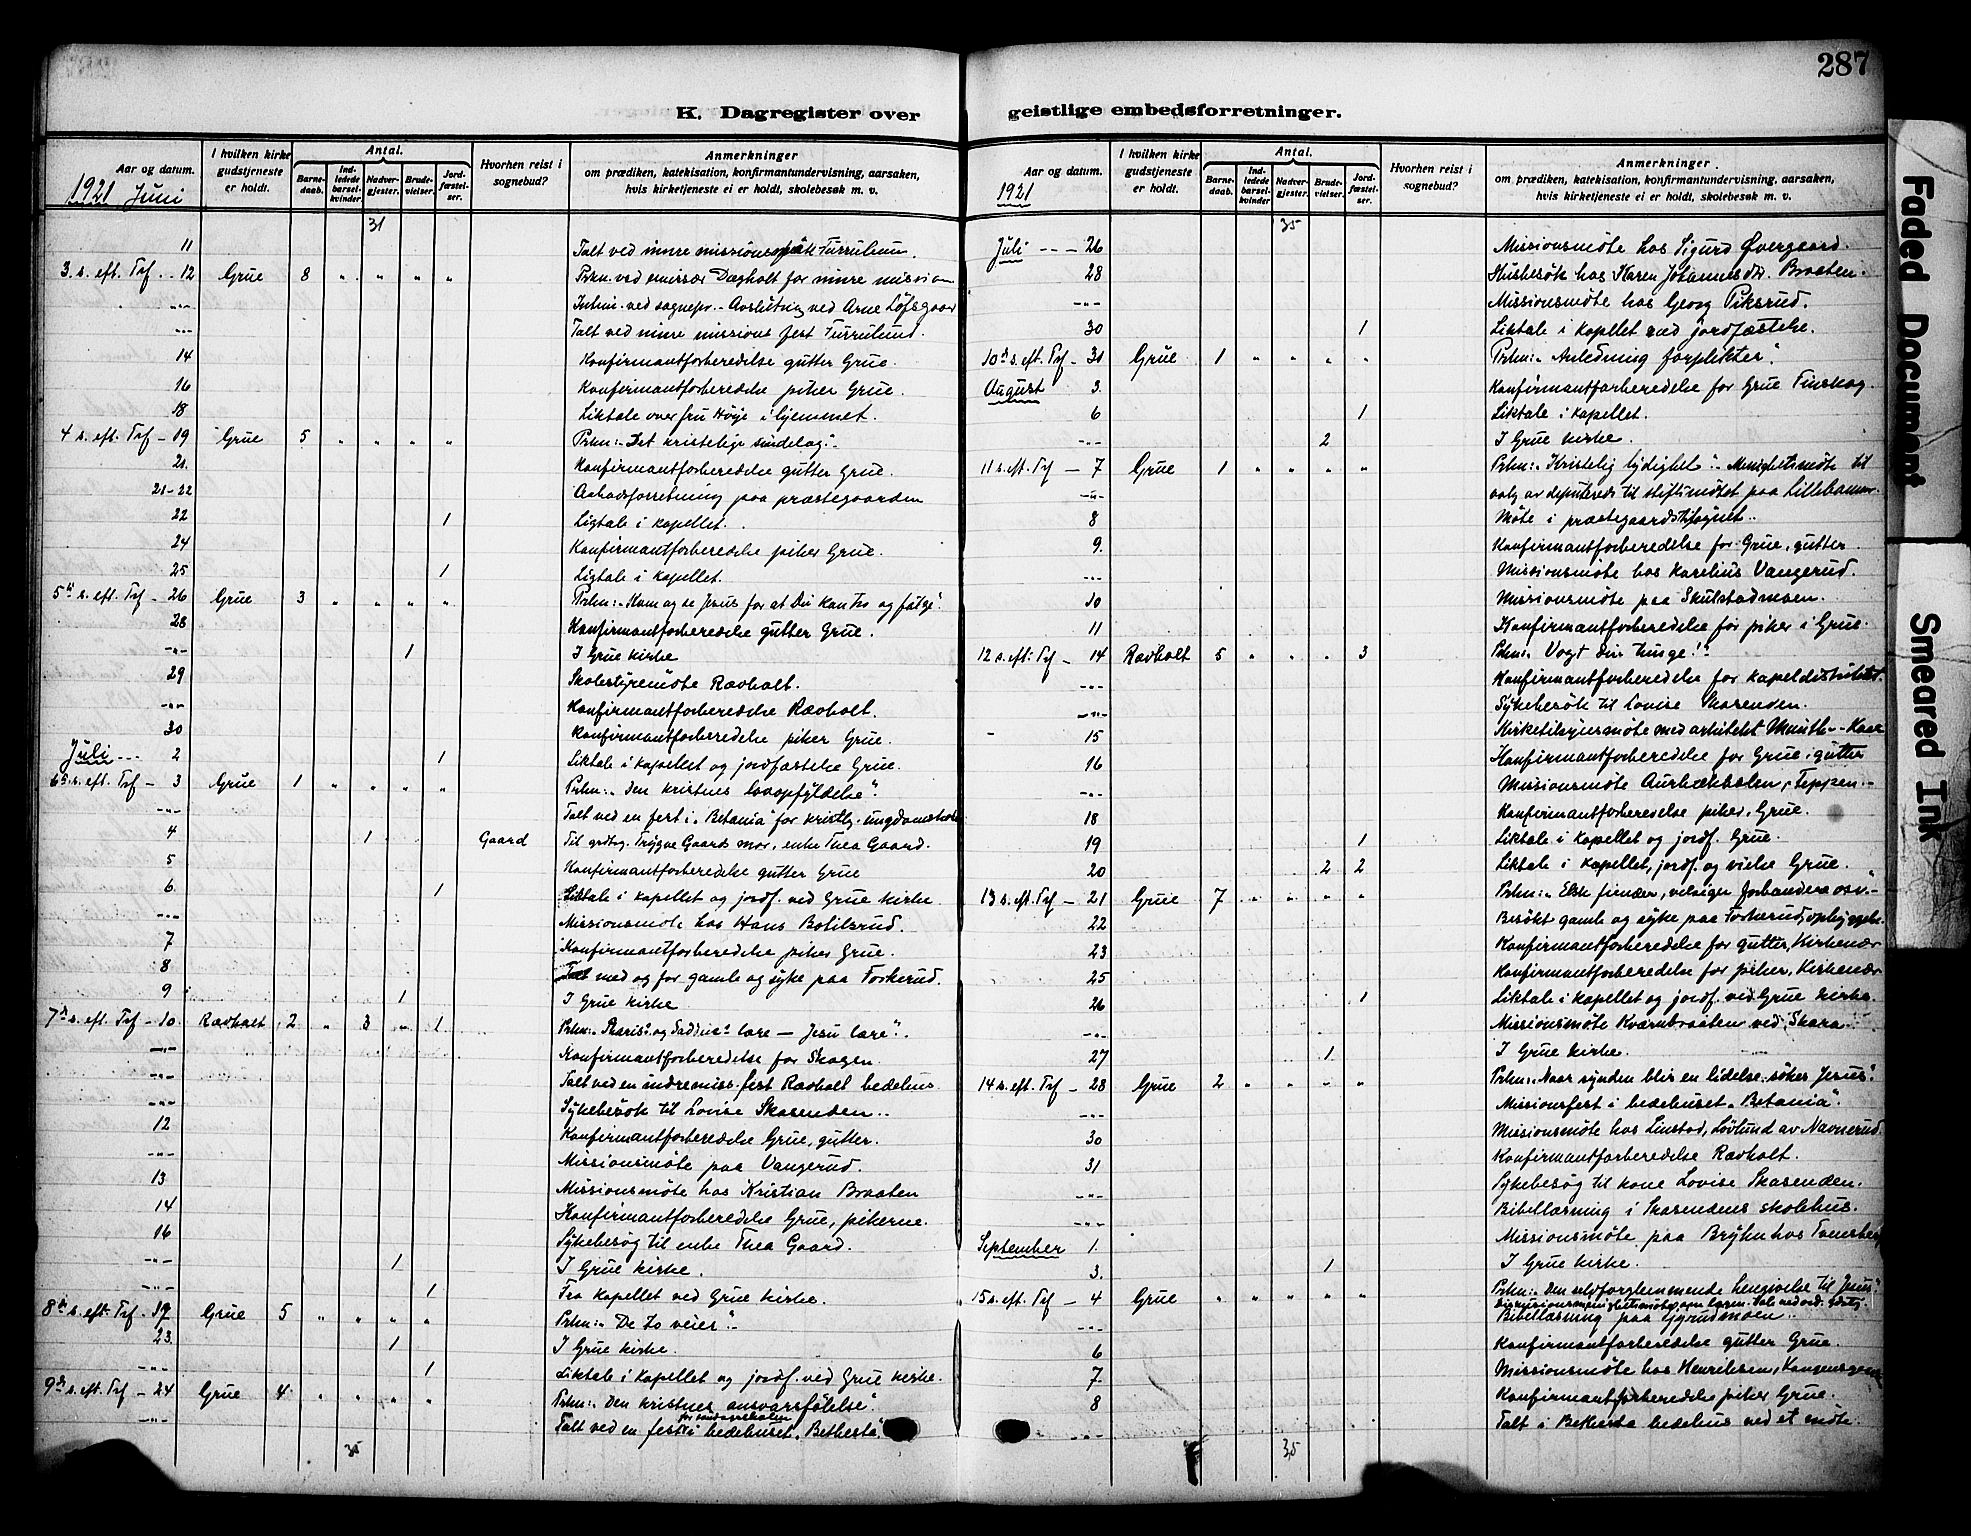 287
K. Dagregister over
Aar og datum.
I hvilken kirke gudstjeneste er holdt.
Antal.
Barne-daab.
Ind-ledede barsel-kvinder.
Nadver-gjester.
Brude-vielser.
Jord-fæstel-ser.
Hvorhen reist i sognebud?
Anmerkninger
om prædiken, katekisation, konfirmantundervisning, aarsaken,
hvis kirketjeneste ei er holdt, skolebesøk m. v.
1921 Juni
31
11 Talt ved indre missions Furulund.
3. s. eft. Trf. -- 12 Grue 8 " " " " Prkn. ved emissær Dagholt for indre mission
-"- Intim. ved sognepr. - Avslutning ved Arne Løfsgaar
-"- Talt ved indre missions fest Furulund.
14 Konfirmantforberedelse gutter Grue.
16 Konfirmantforberedelse piker Grue.
18 Liktale over fru Høje i hjemmet.
4 s. eft. Trf - 19 Grue 5 " " " " Prkn: "Det kristelige sindelag".
21. Konfirmantforberedelse gutter Grue.
21-22 paa præstegaarden
22 1 Ligtale i kapellet.
24 Konfirmantforberedelse piker Grue.
25 1 Ligtale i kapellet.
5te s. eft. Trf - 26 Grue 3 " " " " Prkn: "Kom og se Jesus for at Du kan tro og følge".
28 Konfirmantforberedelse gutter Grue.
-"- 1 I Grue kirke
29 Skolestyremöte Ravholt.
-"- Konfirmantforberedelse Ravholt.
30 Konfirmantforberedelse piker Grue.
Juli --- 2 1 Liktale i kapellet og jordfæstelse Grue.
6te s. eft. Trf - 3 Grue 1 " " " " Prkn: "Den kristnes lovopfyldelse".
-"- Talt ved en fest i "Betania" for kristelig
4 1 Gaard Til Trygve Gaards mor, enke Thea Gaard.
5 Konfirmantforberedelse gutter Grue
6 1 Liktale i kapellet og jordf. ved Grue kirke
-"- Missionsmöte hos Hans Botilsrud.
7 Konfirmantforberedelse piker Grue.
8 med og for gamle og syke paa Torkerud.
9 1 I Grue kirke
7de s. eft. Trf - 10 Ravholt 2 " 3 " 1 Prkn: og lære - Jesu lære".
-"- Konfirmantforberedelse for Skogen.
-"- Talt ved en indremiss. fest Ravholt bedehus
-"- Sykebesök til Lovise Skasenden..
12 Konfirmantforberedelse Grue, gutter.
-"- Missionsmöte paa Vangerud.
13 Missionsmöte hos Kristian Braaten
14 Konfirmantforberedelse Grue, pikerne.
16 Sykebesøg til enke Thea Gaard.
-"- 1 I Grue kirke.
-"- 1 Fra kapellet ved Grue kirke.
8de s. eft. Trf - 17 Grue 5 " " " " Prkn: "De to veier".
23. 1 I Grue kirke.
-"- 1 Liktale i kapellet og jordf. ved Grue kirke.
9de s. eft. Trf - 24 Grue 4 " " " " Prkn: "Den kristnes ansvarsfölelse".
-"- Talt ved en fest for söndagsskolen i bedehuset "Bethesta"
35
geistlige embedsforretninger.
Aar og datum.
I hvilken kirke gudstjeneste er holdt.
Antal.
Barne-daab.
Ind-ledede barsel-kvinder.
Nadver-gjester.
Brude-vielser.
Jord-fæstel-ser.
Hvorhen reist i sognebud?
Anmerkninger.
om prædiken, katekisation, konfirmantundervisning, aarsaken,
hvis kirketjeneste ei er holdt, skolebesøk m. v.
1921
35
Juli --- 26 Missionsmöte hos Sigurd Øvergaard.
28 Husbesök hos Karen Johannesdtr. Braaten.
-"- Missionsmöte hos Georg Piksrud.
30 1 Liktale i kapellet med jordfæstelse.
10de s. eft. Trf - 31 Grue 1 " " " " Prkn: "Anledning forplikter".
August 3. Konfirmantforberedelse for Grue Finskog.
6 1 Liktale i kapellet.
-"- 2 I Grue kirke.
11 s. eft. Trf - 7 Grue 1 " " " " Prkn: "Kristelig lydighet". Menighetsmöte til
-"- valg av deputerede til stiftsmötet paa Lillehammer.
8 Möte i præstegaardstilsynet..
9. Konfirmantforberedelse for Grue, gutter
-"- Missionsmöte hos Karelius Vangerud.
10 Missionsmöte paa Skulstadmoen.
11 Konfirmantforberedelse for piker i Grue.
12 s. eft. Trf - 14 Ravholt 5 " " " 3 Prkn: "Vogt din tunge!"
-"- Konfirmantforberedelse for kapeldistriktet.
-"- Sykebesök til Lovise Skasenden.
15 Kirketilsynsmöte med arkitekt Munthe-Kaas
16 Konfirmantforberedelse for Grue, gutter
-"- Missionsmöte Teppen.
18 Konfirmantforberedelse piker, Grue.
19 1 Liktale i kapellet og jordf. Grue.
20 2 2 Liktale i kapellet, jordf. og vielse Grue.
13 s. eft. Trf - 21 Grue 7 " " " " Prkn: "Elsk fienden, velsign osv."
22 Besökt gamle og syke paa Torkerud,
23 Konfirmantforberedelse for gutter, Kirkenær
25 Konfirmantforberedelse for piker, Kirkenær
26 1 Liktale i kapellet og jordf. ved Grue kirke.
-"- Missionsmöte Kværnbraaten ved Skara
27 1 I Grue kirke.
14 s. eft. Trf - 28 Grue 2 " " " " Prkn: "Naar synden blir en lidelse, søkes Jesus".
-"- Missionsfest i bedehuset "Betania".
30 Missionsmöte hos Linstad, Lövlund av Navnerud.
31 Konfirmantforberedelse Ravholt.
-"- Sykebesøg til kone Lovise Skasenden.
-"- Bibellæsning i Skasendens skolehus.
September 1. Missionsmöte paa Bryhn hos
3. 1 I Grue kirke.
15 s. eft. Trf - 4 Grue " " " " " Prkn: "Den selvforglemmende hengivelse til Jesus".
-"- Bibellæsning paa
6 Konfirmantforberedelse gutter Grue.
7. Missionsmöte hos Henriksen,
8 Konfirmantforberedelse piker, Grue.
-"- Talt i Bethesta bedehus ved et möte.
35
Faded Document
Smeared Ink